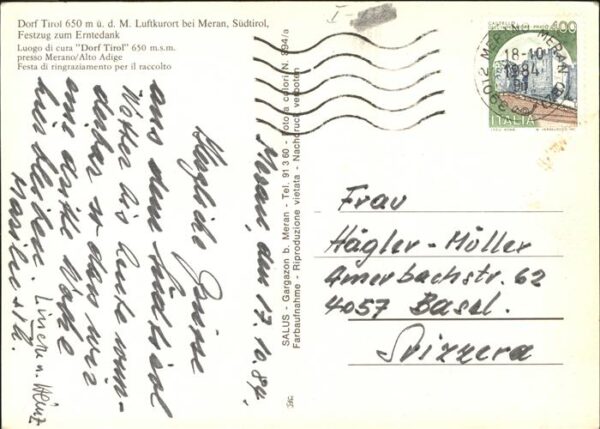 Dorf Tirol 650 m ü. d. M. Luftkurort bei Meran, Südtirol,
Festzug zum Erntedank
Luogo di cura "Dorf Tirol" 650 m.s.m.
presso Merano/Alto Adige
Festa di ringraziamento per il raccolto
I-
CASTELLO
400
39012 MERANO MERAN
18-10
1984
ITALIA
SALUS - Gargazon b. Meran - Tel. 91360 - Foto a colori N. 894/a
Farbaufnahme - Riproduzione vietata - Nachdruck verboten
Meran, am 17.10.84,
Herzliche Grüsse
aus dem Südtirol
Wetter bis heute
wir
eine Woche
hier bleiben.
Linera u. Heinz
Frau
Hägler-Müller
Amerbachstr. 62
4057 Basel.
Svizzera